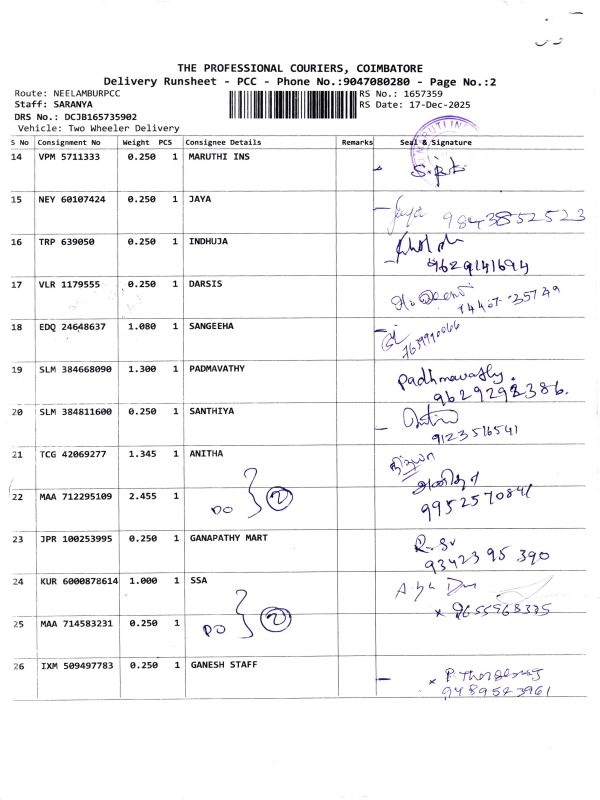 THE PROFESSIONAL COURIERS, COIMBATORE
Delivery Runsheet - PCC - Phone No.:9047080280 - Page No.:2
Route: NEELAMBURPCC RS No.: 1657359
Staff: SARANYA RS Date: 17-Dec-2025
DRS No.: DCJB165735902
Vehicle: Two Wheeler Delivery
S No Consignment No Weight PCS Consignee Details Remarks Seal & Signature
14 VPM 5711333 0.250 1 MARUTHI INS
15 NEY 60107424 0.250 1 JAYA Jaya 9843852523
16 TRP 639050 0.250 1 INDHUJA
9629141694
17 VLR 1179555 0.250 1 DARSIS
18 EDQ 24648637 1.080 1 SANGEEHA
19 SLM 384668090 1.300 1 PADMAVATHY Padhmavathy.
9629298386.
20 SLM 384811600 0.250 1 SANTHIYA
9123516541
21 TCG 42069277 1.345 1 ANITHA
அனிதா
22 MAA 712295109 2.455 1 DO 2 9952570841
23 JPR 100253995 0.250 1 GANAPATHY MART
9342395390
24 KUR 6000878614 1.000 1 SSA
x 9655968375
25 MAA 714583231 0.250 1 DO 2
26 IXM 509497783 0.250 1 GANESH STAFF
9489523961